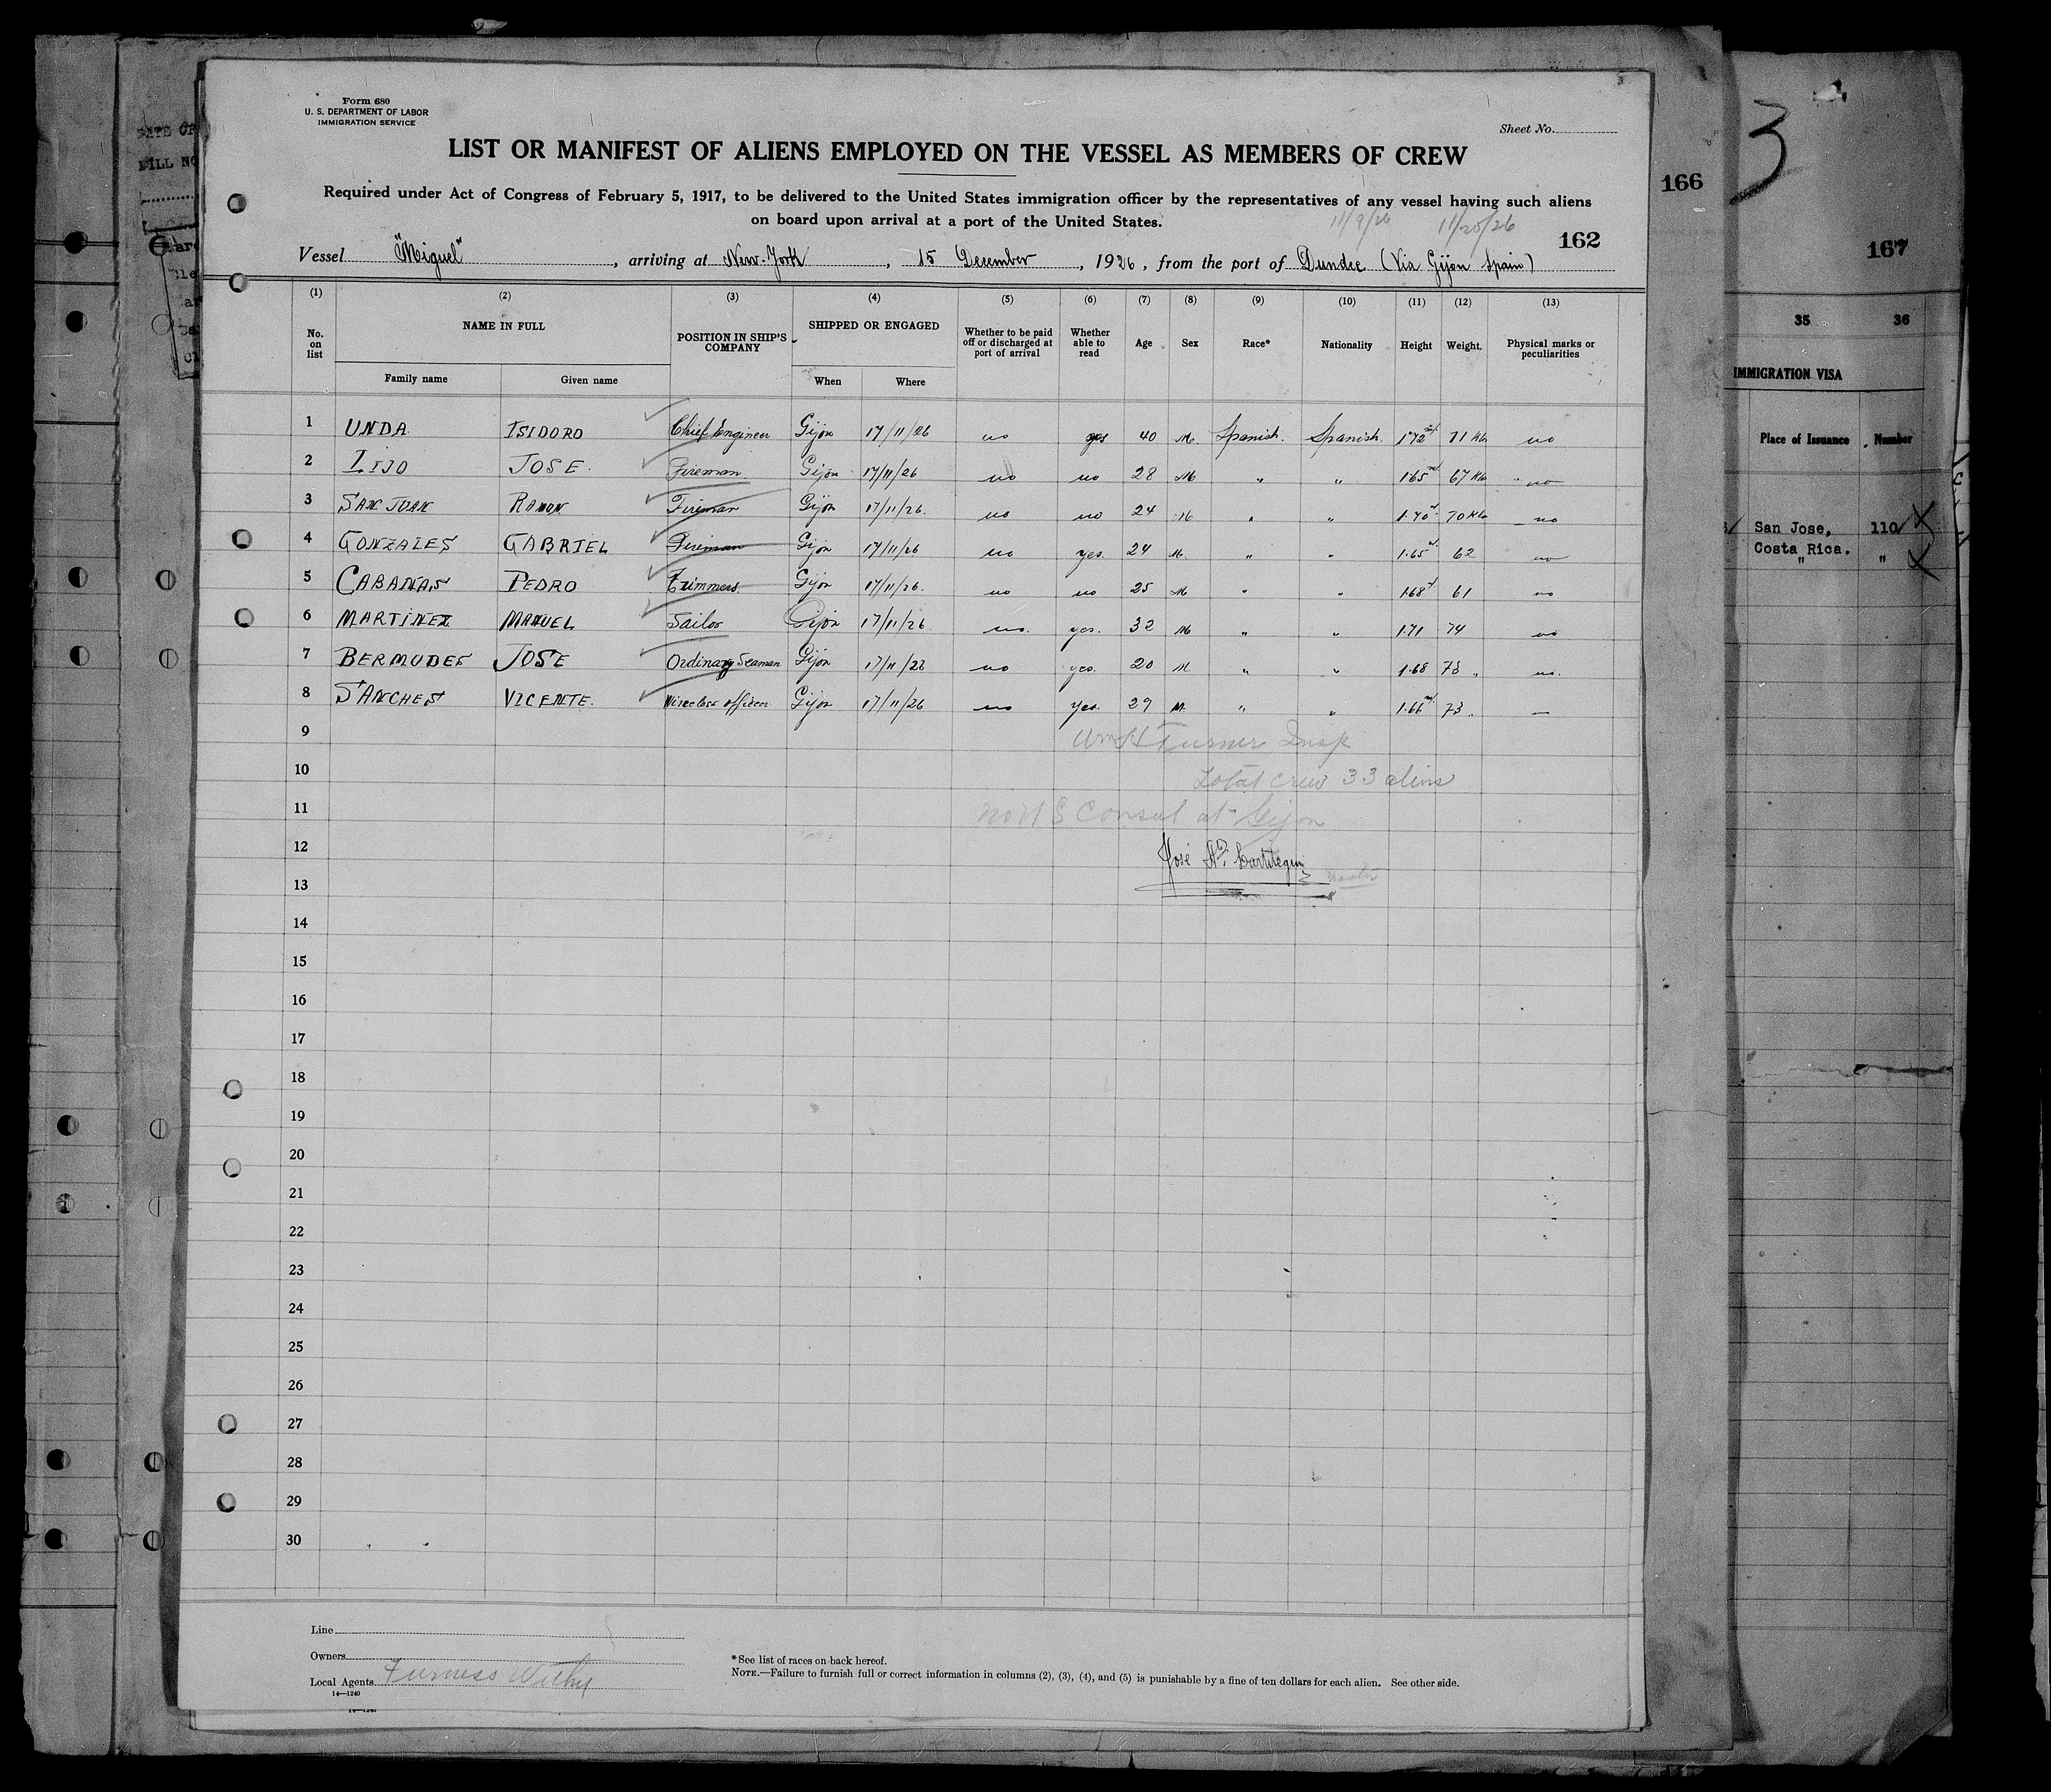 Form 680
U. S. DEPARTMENT OF LABOR
IMMIGRATION SERVICE
Sheet No.
LIST OR MANIFEST OF ALIENS EMPLOYED ON THE VESSEL AS MEMBERS OF CREW
166
3
Required under Act of Congress of February 5, 1917, to be delivered to the United States immigration officer by the representatives of any vessel having such aliens
on board upon arrival at a port of the United States.
11/9/26 11/20/26
162
167
Vessel "Miguel", arriving at New-York, 15 December, 1926, from the port of Dundee (Via Gijon Spain)
(1) (2) (3) (4) (5) (6) (7) (8) (9) (10) (11) (12) (13)
No. on list
NAME IN FULL
Family name Given name
POSITION IN SHIP'S COMPANY
SHIPPED OR ENGAGED
When Where
Whether to be paid off or discharged at port of arrival
Whether able to read
Age Sex Race* Nationality Height Weight.
Physical marks or peculiarities
35 36
IMMIGRATION VISA
Place of Issuance Number
San Jose, 110
Costa Rica.
" "
1 UNDA ISIDORO Chief Engineer Gijon 17/11/26 no yes 40 M. Spanish. Spanish. 1'72 71 Kls no
2 LIJO JOSE. Fireman Gijon 17/11/26 no no 28 M " " 1'65 67 Kls no
3 SAN JUAN RAMON Fireman Gijon 17/11/26. no no 24 M " " 1.70 70 Kls no
4 GONZALES GABRIEL Fireman Gijon 17/11/26 no yes. 24 M. " " 1.65 62 no
5 CABANAS PEDRO Trimmers Gijon 17/11/26. no no 25 M " " 1.68 61 no
6 MARTINEZ MANUEL Sailor Gijon 17/11/26. no. yes. 32 M " " 1.71 74 no
7 BERMUDES JOSE Ordinary Seaman Gijon 17/11/26 no yes. 20 M " " 1.68 73 no.
8 SANCHES VICENTE. Wireless officer Gijon 17/11/26 no yes. 29 M. " " 1.66 73. —
9 Wm H Turner Insp
10 Total crew 33 aliens
11 No U S Consul at Gijon
12 José
13 Master
14
15
16
17
18
19
20
21
22
23
24
25
26
27
28
29
30
Line
Owners
Local Agents Furness Withy
14—1240
*See list of races on back hereof.
NOTE.—Failure to furnish full or correct information in columns (2), (3), (4), and (5) is punishable by a fine of ten dollars for each alien. See other side.